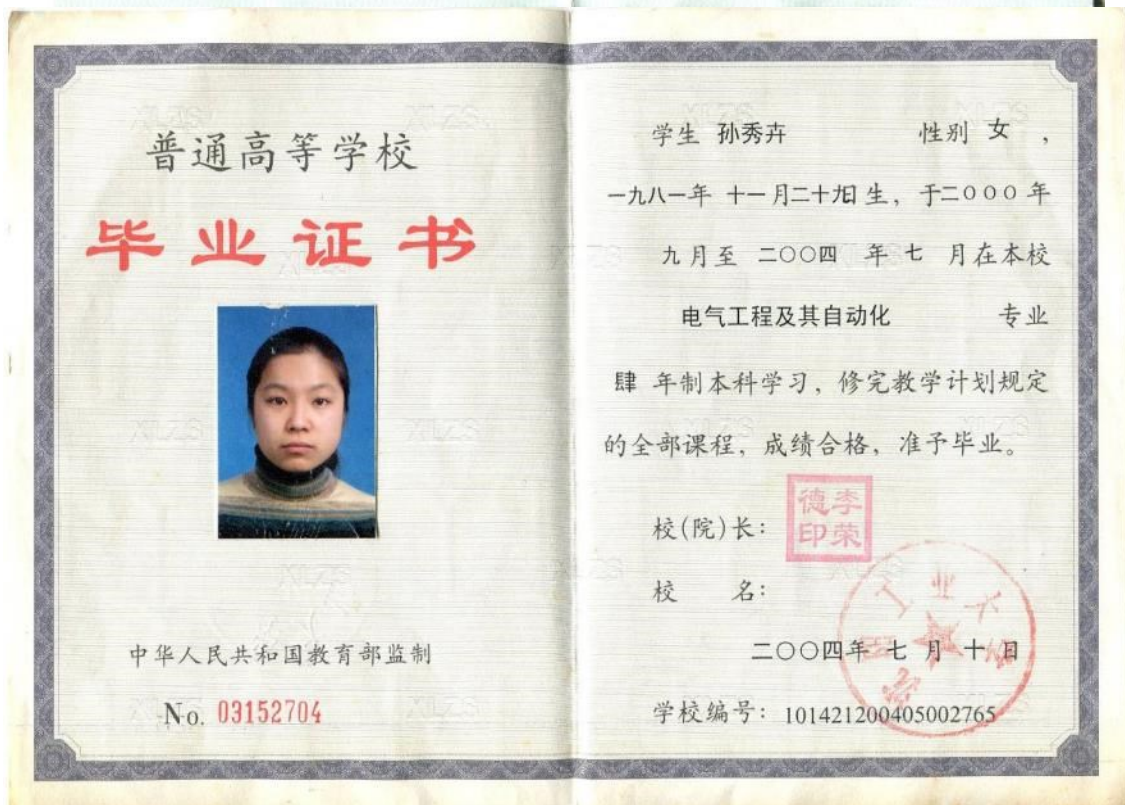 普通高等学校
毕业证书
中华人民共和国教育部监制
No. 03152704
学生 孙秀卉 性别 女 ,
一九八一年 十一月二十九日生, 于二〇〇〇年
九月至 二〇〇四 年 七 月在本校
电气工程及其自动化 专业
肆 年制本科学习, 修完教学计划规定
的全部课程, 成绩合格, 准予毕业。
校(院)长:
李荣德印
校 名:
工业大学
二〇〇四年 七 月 十 日
学校编号: 101421200405002765